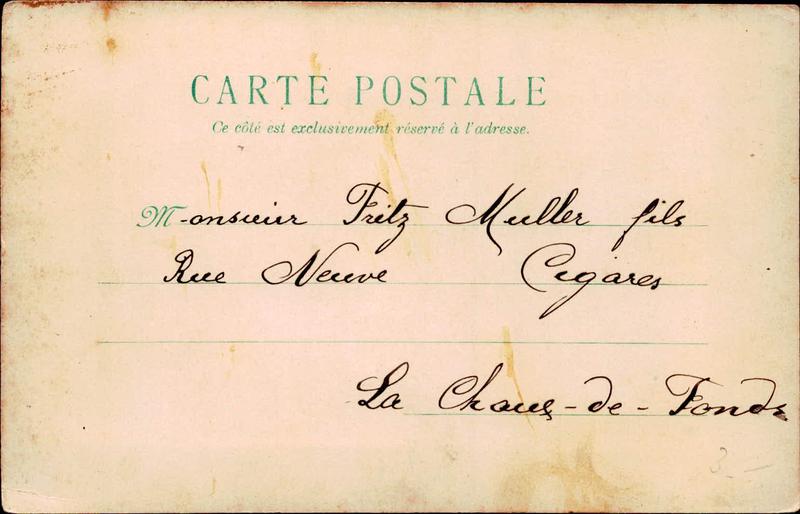 CARTE POSTALE
Ce côté est exclusivement réservé à l'adresse.
M-onsieur Fritz Muller fils
Rue Neuve Cigares
La Chaux-de-Fonds
3.-